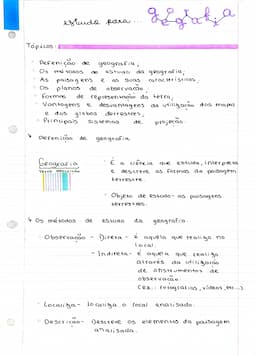 estudo para... geografia
Tópicos:
· Definição de geografia;
· Os métodos de estudo da geografia;
· As paisagens e as suas características;
· Os planos de observação;
· Formas de representação da terra;
· Vantagens e desvantagens da utilização dos mapas
e dos globos terrestres;
· Principais sistemas de projeção.
↳ Definição de geografia
Geografia
TERRA DESCRIÇÃO
· É a ciência que estuda, interpreta
e descreve as formas da paisagem
terrestre.
· Objeto de estudo - as paisagens
terrestres.
↳ Os métodos de estudo da geografia.
· Observação - Direta - é aquela que realizo no
local.
- Indireta - é aquela que realizo
através da utilização
de instrumentos de
observação.
(ex.: fotografias, vídeos, etc...)
· Localiza - localiza o local analisado.
· Descrição - Descreve os elementos da paisagem
analisada.